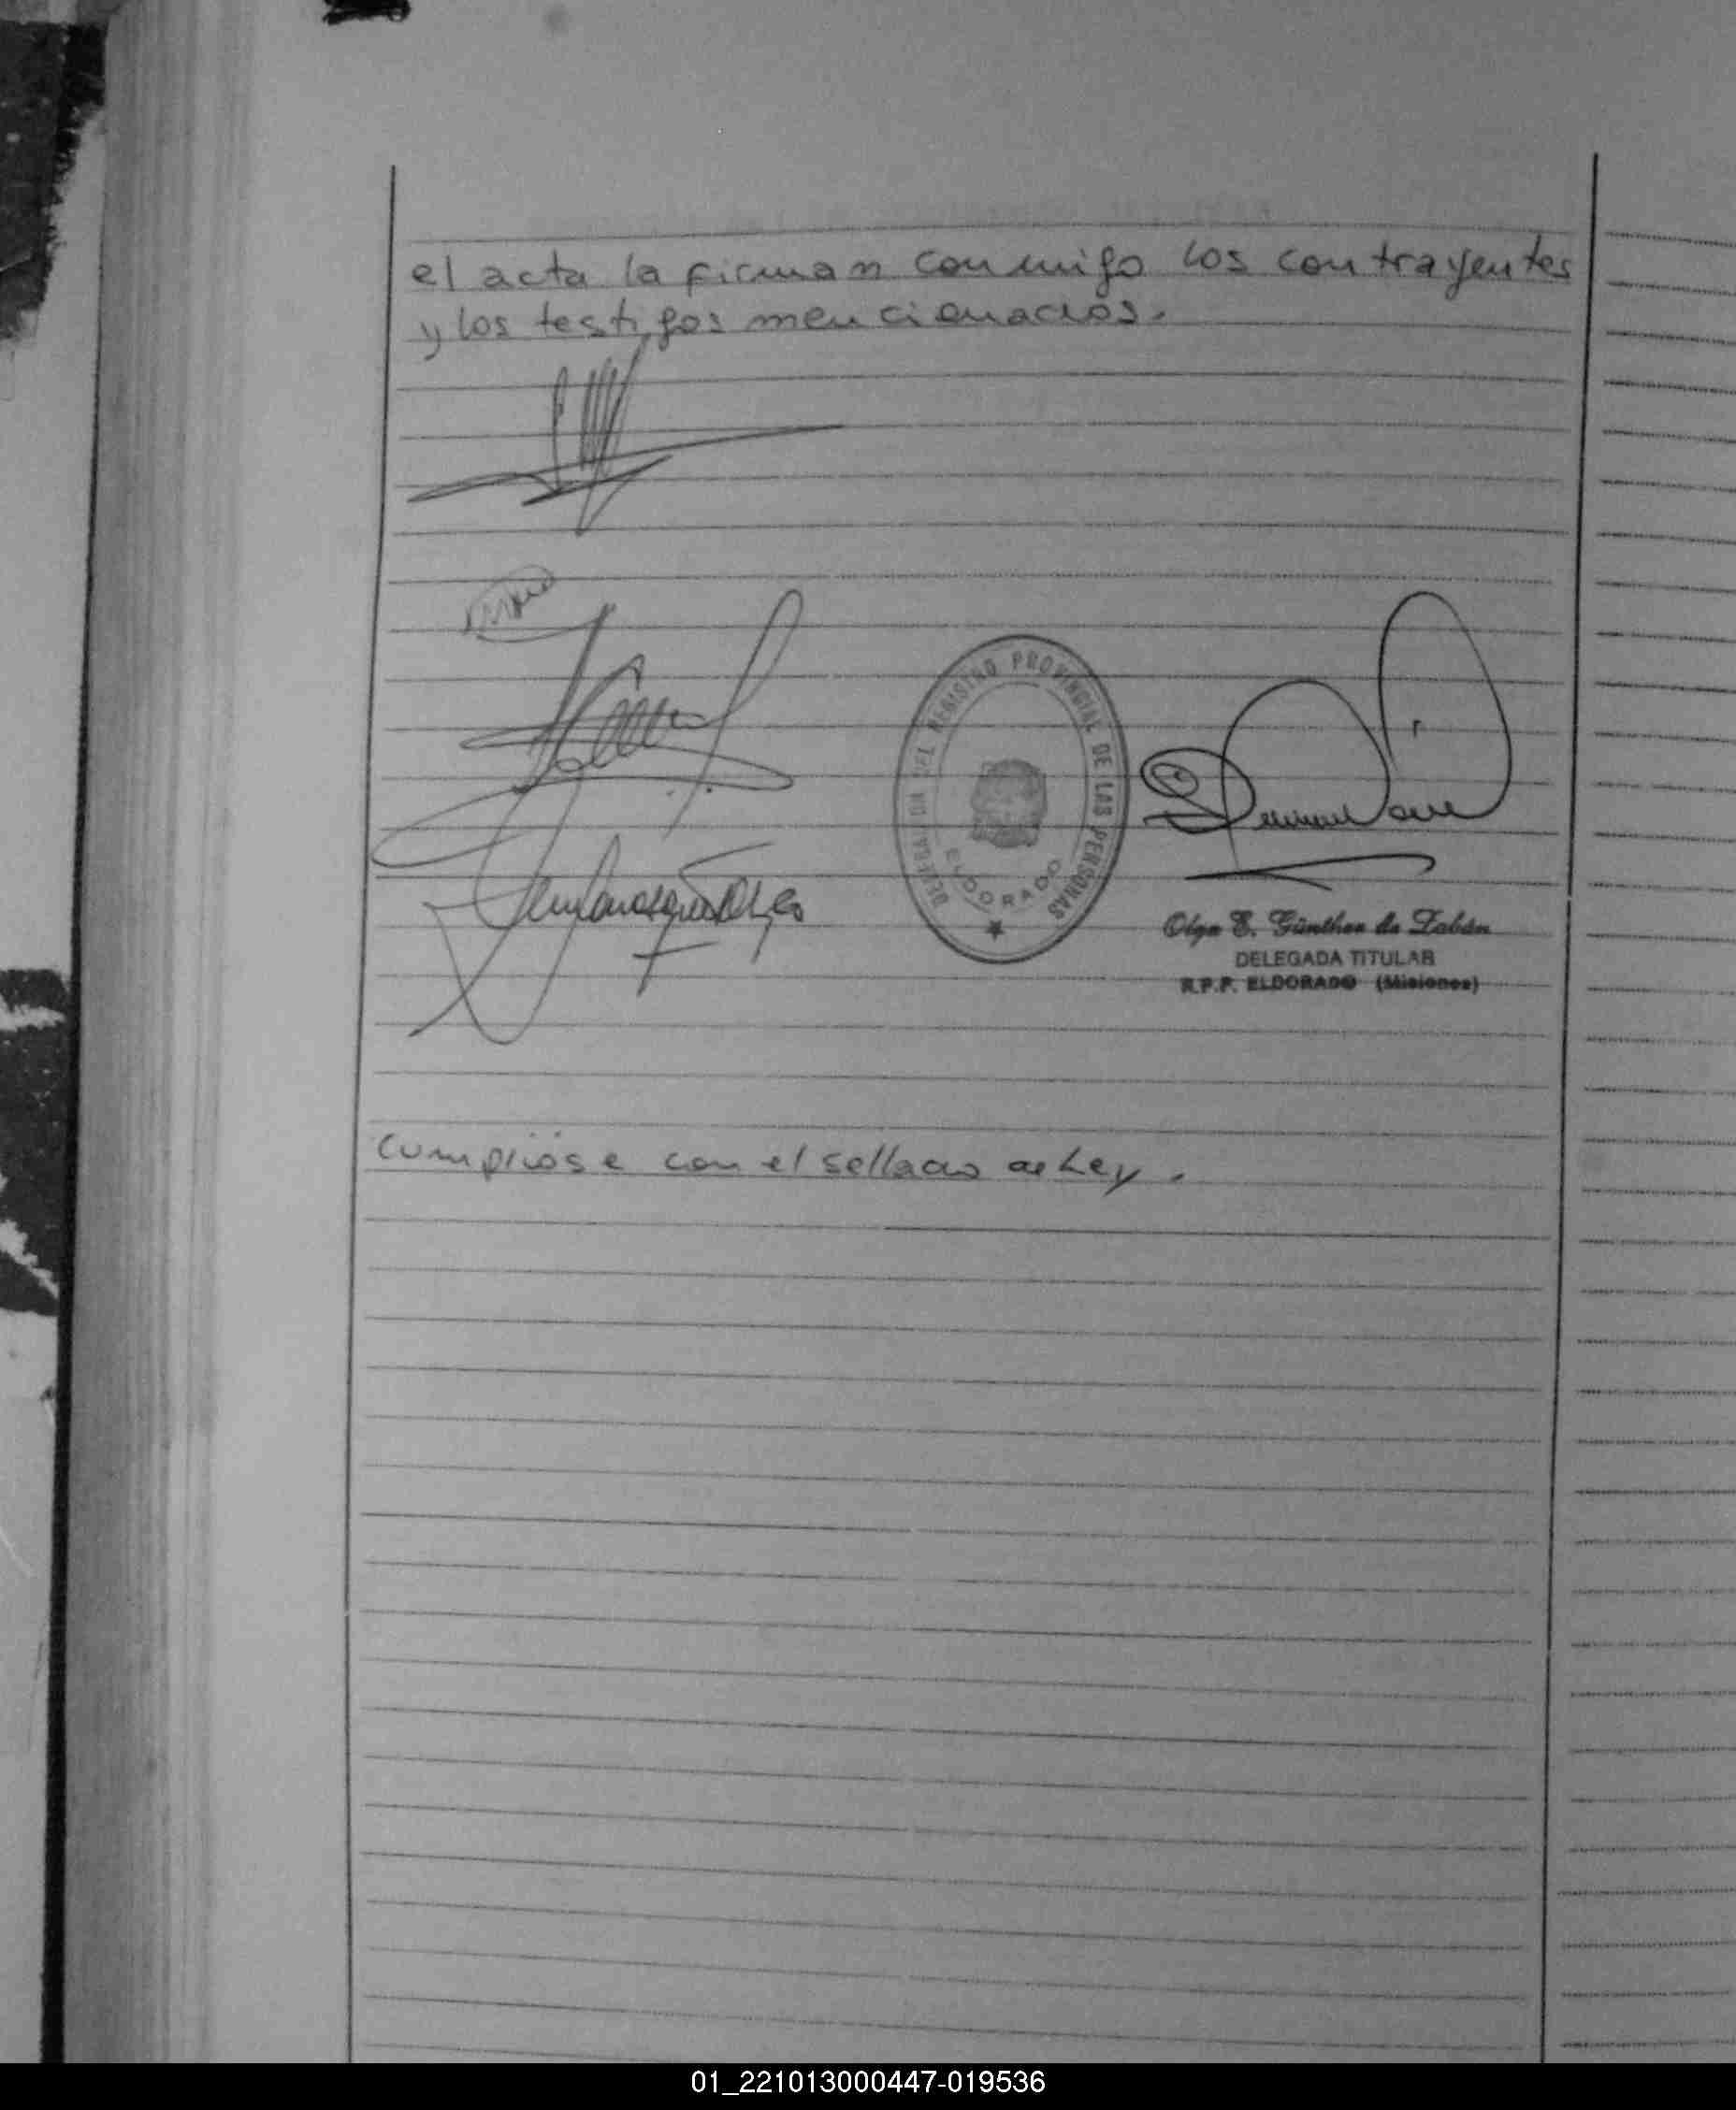 el acta la firman conmigo los contrayentes
y los testigos mencionados.
DELEGACION DEL REGISTRO PROVINCIAL DE LAS PERSONAS
ELDORADO
Olga E. Günther de Zabán
DELEGADA TITULAR
R.P.P. ELDORADO (Misiones)
Cumplióse con el sellado de Ley.
01_221013000447-019536